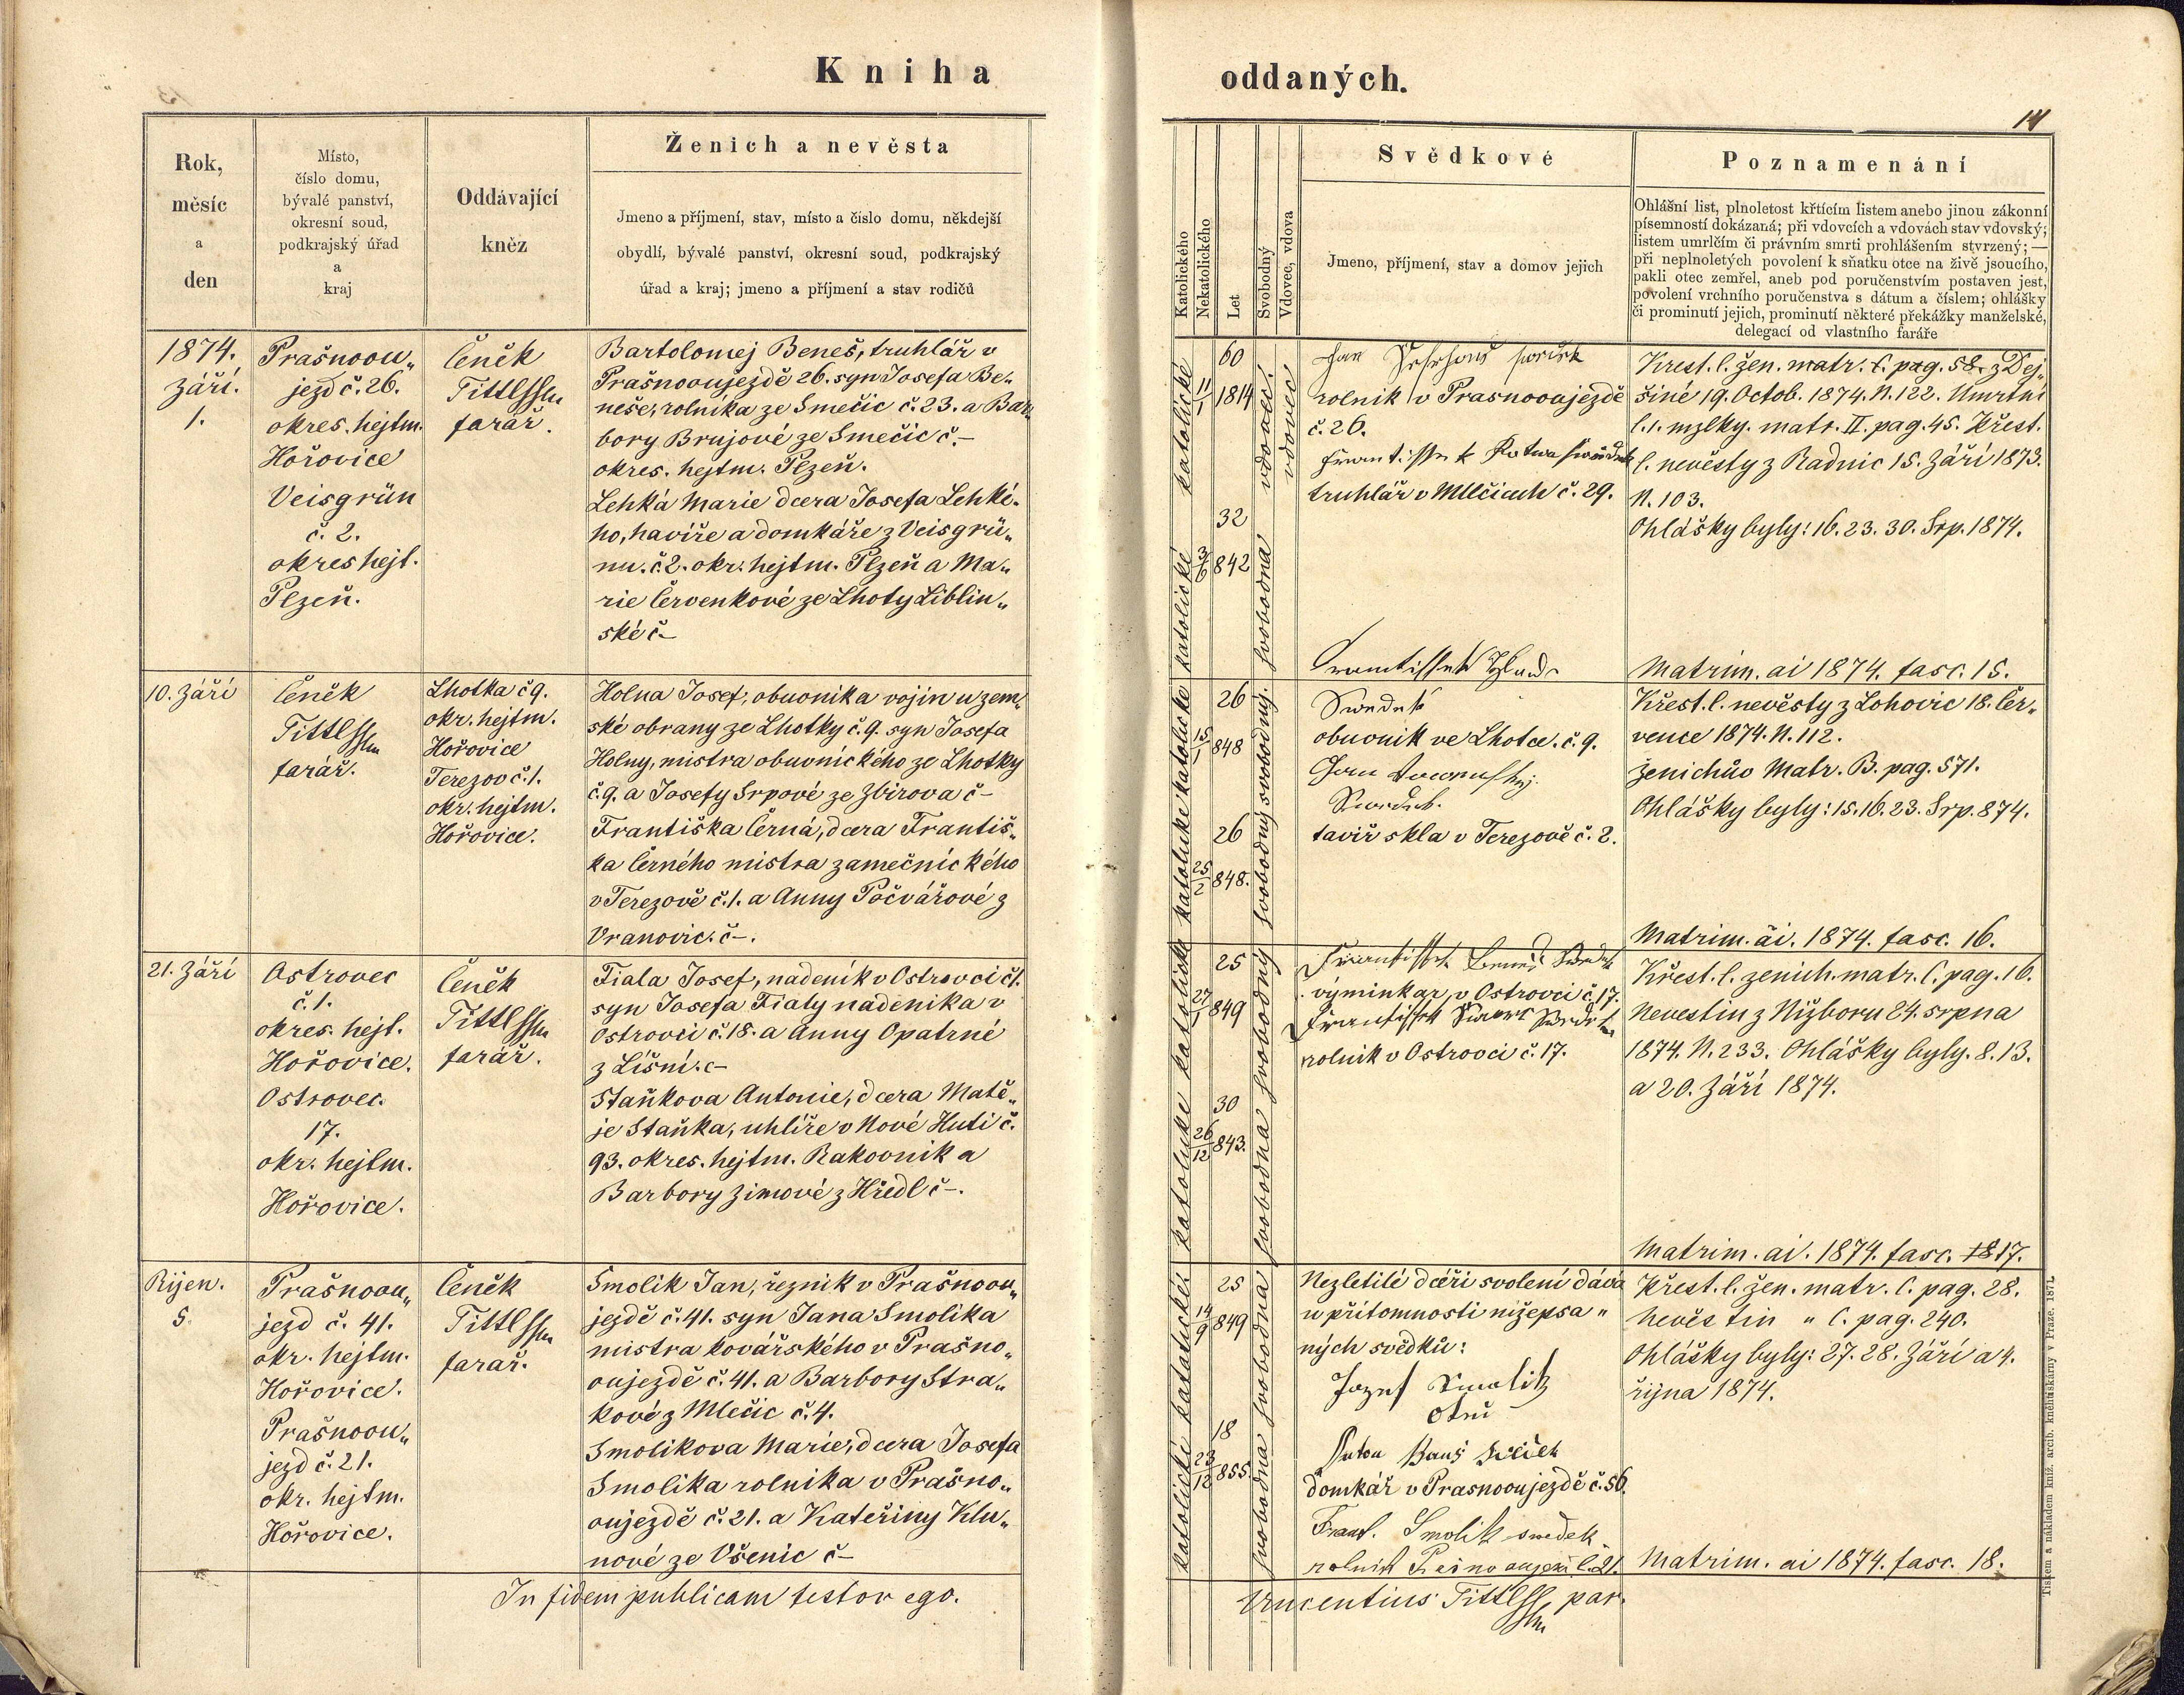 Kniha
oddaných.
14
Rok,
měsíc
a
den
Místo,
číslo domu,
bývalé panství,
okresní soud,
podkrajský úřad
a
kraj
Oddávající
kněz
Ženich a nevěsta
Jmeno a příjmení, stav, místo a číslo domu, někdejší
obydlí, bývalé panství, okresní soud, podkrajský
úřad a kraj; jmeno a příjmení a stav rodičů
Katolického
Nekatolického
Let
Svobodný
Vdovec, vdova
Svědkové
Jmeno, příjmení, stav a domov jejich
Poznamenání
Ohlášní list, plnoletost křtícím listem anebo jinou zákonní
písemností dokázaná; při vdovcích a vdovách stav vdovský;
listem umrlčím či právním smrti prohlášením stvrzený; —
při neplnoletých povolení k sňatku otce na živě jsoucího,
pakli otec zemřel, aneb pod poručenstvím postaven jest,
povolení vrchního poručenstva s dátum a číslem; ohlášky
či prominutí jejich, prominutí některé překážky manželské,
delegací od vlastního faráře
1874.
Září.
1.
Prašnoou„
jezd č. 26.
okres. hejtm.
Hořovice
Veisgrün
č. 2.
okres hejt.
Plzeň.
Čeněk
Tittl
farář.
Bartolomej Beneš, truhlář v
Prašnooujezdě 26. syn Josefa Be„
neše, rolníka ze Smečic č. 23. a Bar„
bory Brujové ze Smečic č.–
okres. hejtm. Plzeň.
Lehká Marie dcera Josefa Lehké„
ho, havíře a domkáře z Veisgrü„
nu. č. 2. okr. hejtm. Plzeň a Ma„
rie Červenkové ze Lhoty Liblin„
ské č–
katolické
11/1
60
1814
vdovec
vdovec
katolické
3/6
32
842
svobodná
Jan
rolník v Prasnooujezdě
č. 26.
truhlář v Mlečicích č. 29.
Krest. l. žen. matr. C. pag. 58. z Dej„
šiné 19. Octob. 1874. N. 122. Umrtní
l. 1. mzlky. matr. II. pag. 45. Křest.
l. nevěsty z Radnic 15. Září 1873.
N. 103.
Ohlášky byly: 16. 23. 30. Srp. 1874.
Matrim. ai 1874. fasc. 15.
10. Září
Čeněk
Tittl
farář.
Lhotka č 9.
okr. hejtm.
Hořovice
Terezov č. 1.
okr. hejtm.
Hořovice.
Holna Josef, obuvník a vojín u zem„
ské obrany ze Lhotky č. 9. syn Josefa
Holny, mistra obuvnického ze Lhotky
č. 9. a Josefy Srpové ze Zbirova č–
Františka Černá, dcera Františ„
ka Černého mistra zamečnického
v Terezově č. 1. a Anny Počvářové z
Vranovic. č–.
katolické
15/1
26
848
svobodný
katolické
25/2
26
848.
svobodný
Swedek
obuvník ve Lhotce. č. 9.
tavíř skla v Terezově č. 2.
Křest. l. nevěsty z Lohovic 18. Čer„
vence 1874. N. 112.
Ženichův Matr. B. pag. 571.
Ohlášky byly: 15. 16. 23. Srp. 874.
Matrim. ai. 1874. fasc. 16.
21. Září
Ostrovec
č. 1.
okres. hejt.
Hořovice.
Ostrovec
17.
okr. hejtm.
Hořovice.
Čeněk
Tittl
farář.
Fiala Josef, nadeník v Ostrovci č 1.
syn Josefa Fialy nadeníka v
Ostrovci č. 18. a Anny Opatrné
z Líšní. c–
Staňkova Antonie, dcera Matě„
je Staňka, uhlíře v Nové Huti č.
93. okres. hejtm. Rakovník a
Barbory Zimové z Hředl č–.
katolické
27/1
25
849
svobodný
katolické
26/12
30
843.
svobodna
výminkar, v Ostrovci č. 17.
rolník v Ostrovci č. 17.
Křest. l. zenich. matr. C. pag. 16.
Nevestin z Nižboru 24. srpna
1874. N. 233. Ohlášky byly. 8. 13.
a 20. Září 1874.
Matrim. ai. 1874. fasc. 17.
Říjen.
5.
Prašnoou„
jezd č. 41.
okr. hejtm.
Hořovice.
Prašnoou„
jezd č. 21.
okr. hejtm.
Hořovice.
Čeněk
Tittl
farař.
Smolik Jan, řeznik v Prašnoou„
jezdě č. 41. syn Jana Smolíka
mistra kovářského v Prašno„
oujezdě č. 41. a Barbory Stra„
kové z Mlečic č. 4.
Smolikova Marie, dcera Josefa
Smolika rolnika v Prašno„
oujezdě č. 21. a Kateřiny Klu„
nové ze Všenic č–
katolické
14/9
25
849
svobodna
katolické
23/12
18
855.
svobodna
Nezletilé dceři svolení dává
v přítomnosti nížepsa„
ných svědků:
Jozef Smolik
Otec
domkář v Prasnooujezdě č. 56.
Frant. Smolik swedek
Křest. l. žen. matr. C. pag. 28.
nevěstin „ C. pag. 240.
Ohlášky byly: 27. 28. Září a 4.
října 1874.
Matrim. ai 1874. fasc. 18.
In fidem publicam testor ego.
Vincentius Tittl par.
Tiskem a nákladem kníž. arcib. kněhtiskárny v Praze. 1871.